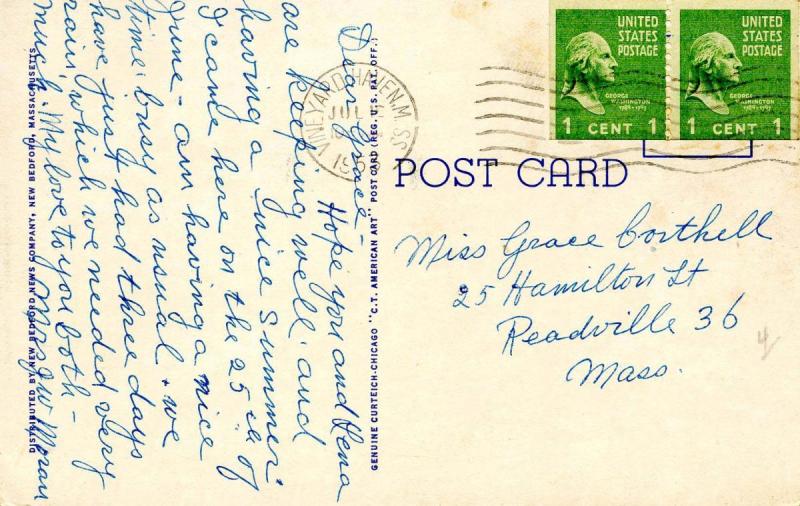 Dear Grace –
Hope you and Lena
are keeping well and
having a nice summer.
I came here on the 25th of
June – am having a nice
time. busy as usual. + we
have just had three days
rain, which we needed very
much. My love to you both –
Mrs J W Moran
DISTRIBUTED BY NEW BEDFORD NEWS COMPANY, NEW BEDFORD, MASSACHUSETTS
GENUINE CURTEICH-CHICAGO "C.T. AMERICAN ART" POST CARD (REG. U.S. PAT. OFF.)
VINEYARD HAVEN, MASS.
JUL
UNITED
STATES
POSTAGE
GEORGE
WASHINGTON
1 CENT 1
UNITED
STATES
POSTAGE
GEORGE
WASHINGTON
1 CENT 1
POST CARD
Miss Grace Corthell
25 Hamilton St
Readville 36
Mass.
4